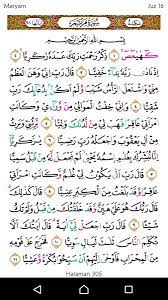 Maryam Juz 16
سُورَةُ مَرْيَمَ
بِسْمِ اللَّهِ الرَّحْمَٰنِ الرَّحِيمِ
كٓهيعٓصٓ ١ ذِكْرُ رَحْمَتِ رَبِّكَ عَبْدَهُ زَكَرِيَّا ٢
إِذْ نَادَىٰ رَبَّهُ نِدَاءً خَفِيًّا ٣ قَالَ رَبِّ إِنِّي وَهَنَ الْعَظْمُ
مِنِّي وَاشْتَعَلَ الرَّأْسُ شَيْبًا وَلَمْ أَكُن بِدُعَائِكَ رَبِّ شَقِيًّا ٤
وَإِنِّي خِفْتُ الْمَوَالِيَ مِن وَرَاءِي وَكَانَتِ امْرَأَتِي
عَاقِرًا فَهَبْ لِي مِن لَّدُنكَ وَلِيًّا ٥ يَرِثُنِي وَيَرِثُ مِنْ
ءَالِ يَعْقُوبَ وَاجْعَلْهُ رَبِّ رَضِيًّا ٦ يَٰزَكَرِيَّا إِنَّا نُبَشِّرُكَ
بِغُلَٰمٍ اسْمُهُ يَحْيَىٰ لَمْ نَجْعَل لَّهُ مِن قَبْلُ سَمِيًّا ٧
قَالَ رَبِّ أَنَّىٰ يَكُونُ لِي غُلَٰمٌ وَكَانَتِ امْرَأَتِي عَاقِرًا
وَقَدْ بَلَغْتُ مِنَ الْكِبَرِ عِتِيًّا ٨ قَالَ كَذَٰلِكَ قَالَ رَبُّكَ
هُوَ عَلَيَّ هَيِّنٌ وَقَدْ خَلَقْتُكَ مِن قَبْلُ وَلَمْ تَكُ شَيْئًا ٩
قَالَ رَبِّ اجْعَل لِّي ءَايَةً قَالَ ءَايَتُكَ أَلَّا تُكَلِّمَ النَّاسَ
ثَلَٰثَ لَيَالٍ سَوِيًّا ١٠ فَخَرَجَ عَلَىٰ قَوْمِهِ مِنَ الْمِحْرَابِ
فَأَوْحَىٰ إِلَيْهِمْ أَن سَبِّحُوا بُكْرَةً وَعَشِيًّا ١١
Halaman 305